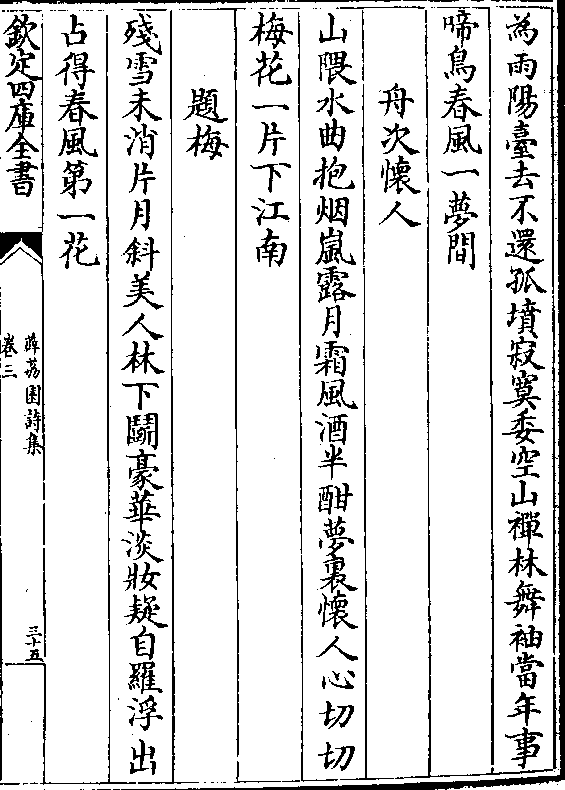 為雨陽臺去不還孤墳寂寞委空山禪林舞袖當年事
啼鳥春風一夢間
舟次懷人
山隈水曲抱烟嵐露月霜風酒半酣夢裏懷人心切切
梅花一片下江南
題梅
殘雪未消片月斜美人林下鬬豪華淡妝疑自羅浮出
占得春風第一花
欽定四庫全書
薜荔園詩集
卷三
三十五